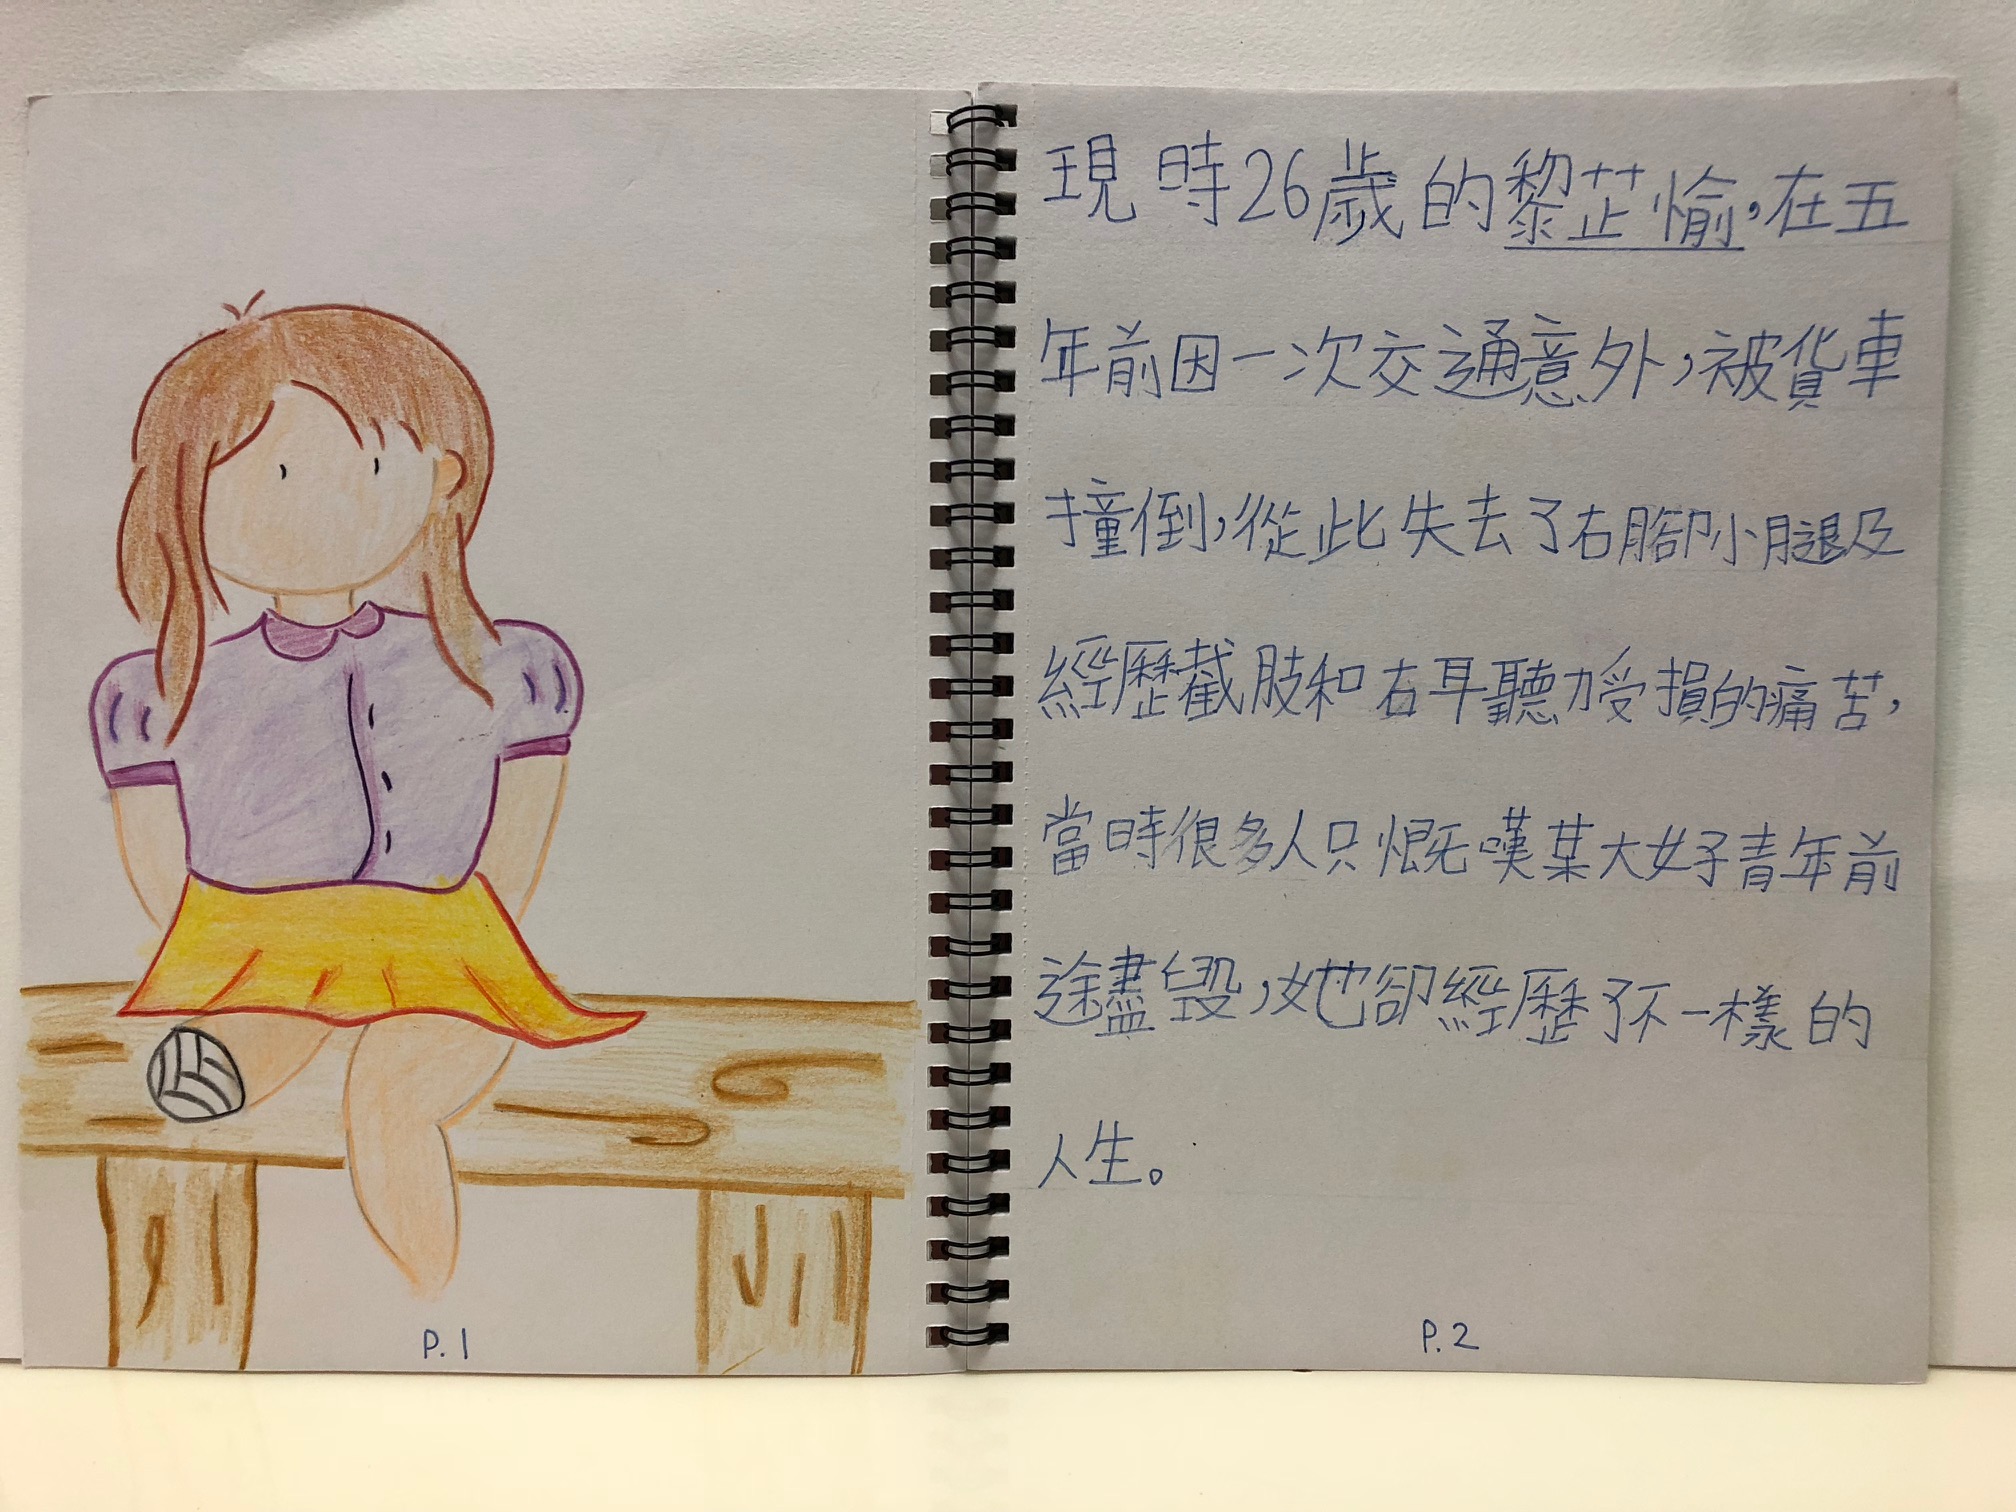 現時26歲的黎芷愉,在五
年前因一次交通意外,被貨車
撞倒,從此失去了右腳小腿及
經歷截肢和右耳聽力受損的痛苦,
當時很多人只慨嘆某大好青年前
途盡毀,她卻經歷了不一樣的
人生。
P.1
P.2